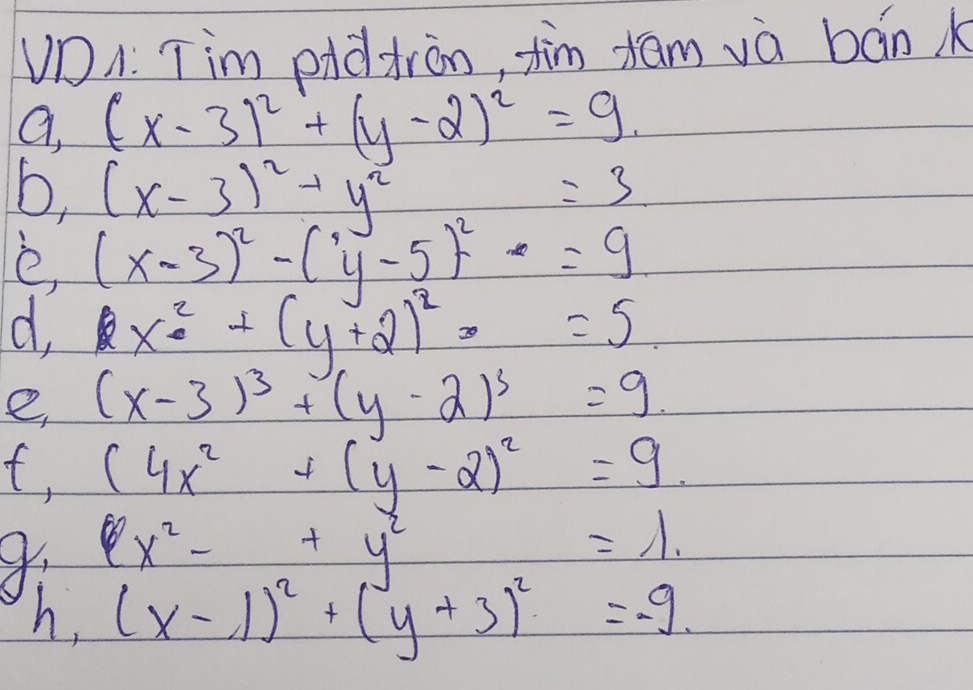 VD1: Tìm ptđtròn, tìm tâm và bán k
a, (x-3)² + (y-2)² = 9.
b, (x-3)² + y² = 3
c, (x-3)² - (y-5)² = 9
d, x² + (y+2)² = 5.
e, (x-3)³ + (y-2)³ = 9.
f, (4x² + (y-2)² = 9.
g, x² - + y² = 1.
h, (x-1)² + (y+3)² = -9.